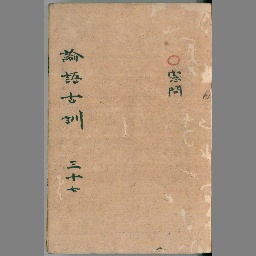 ○憲問
論語古訓 三十七